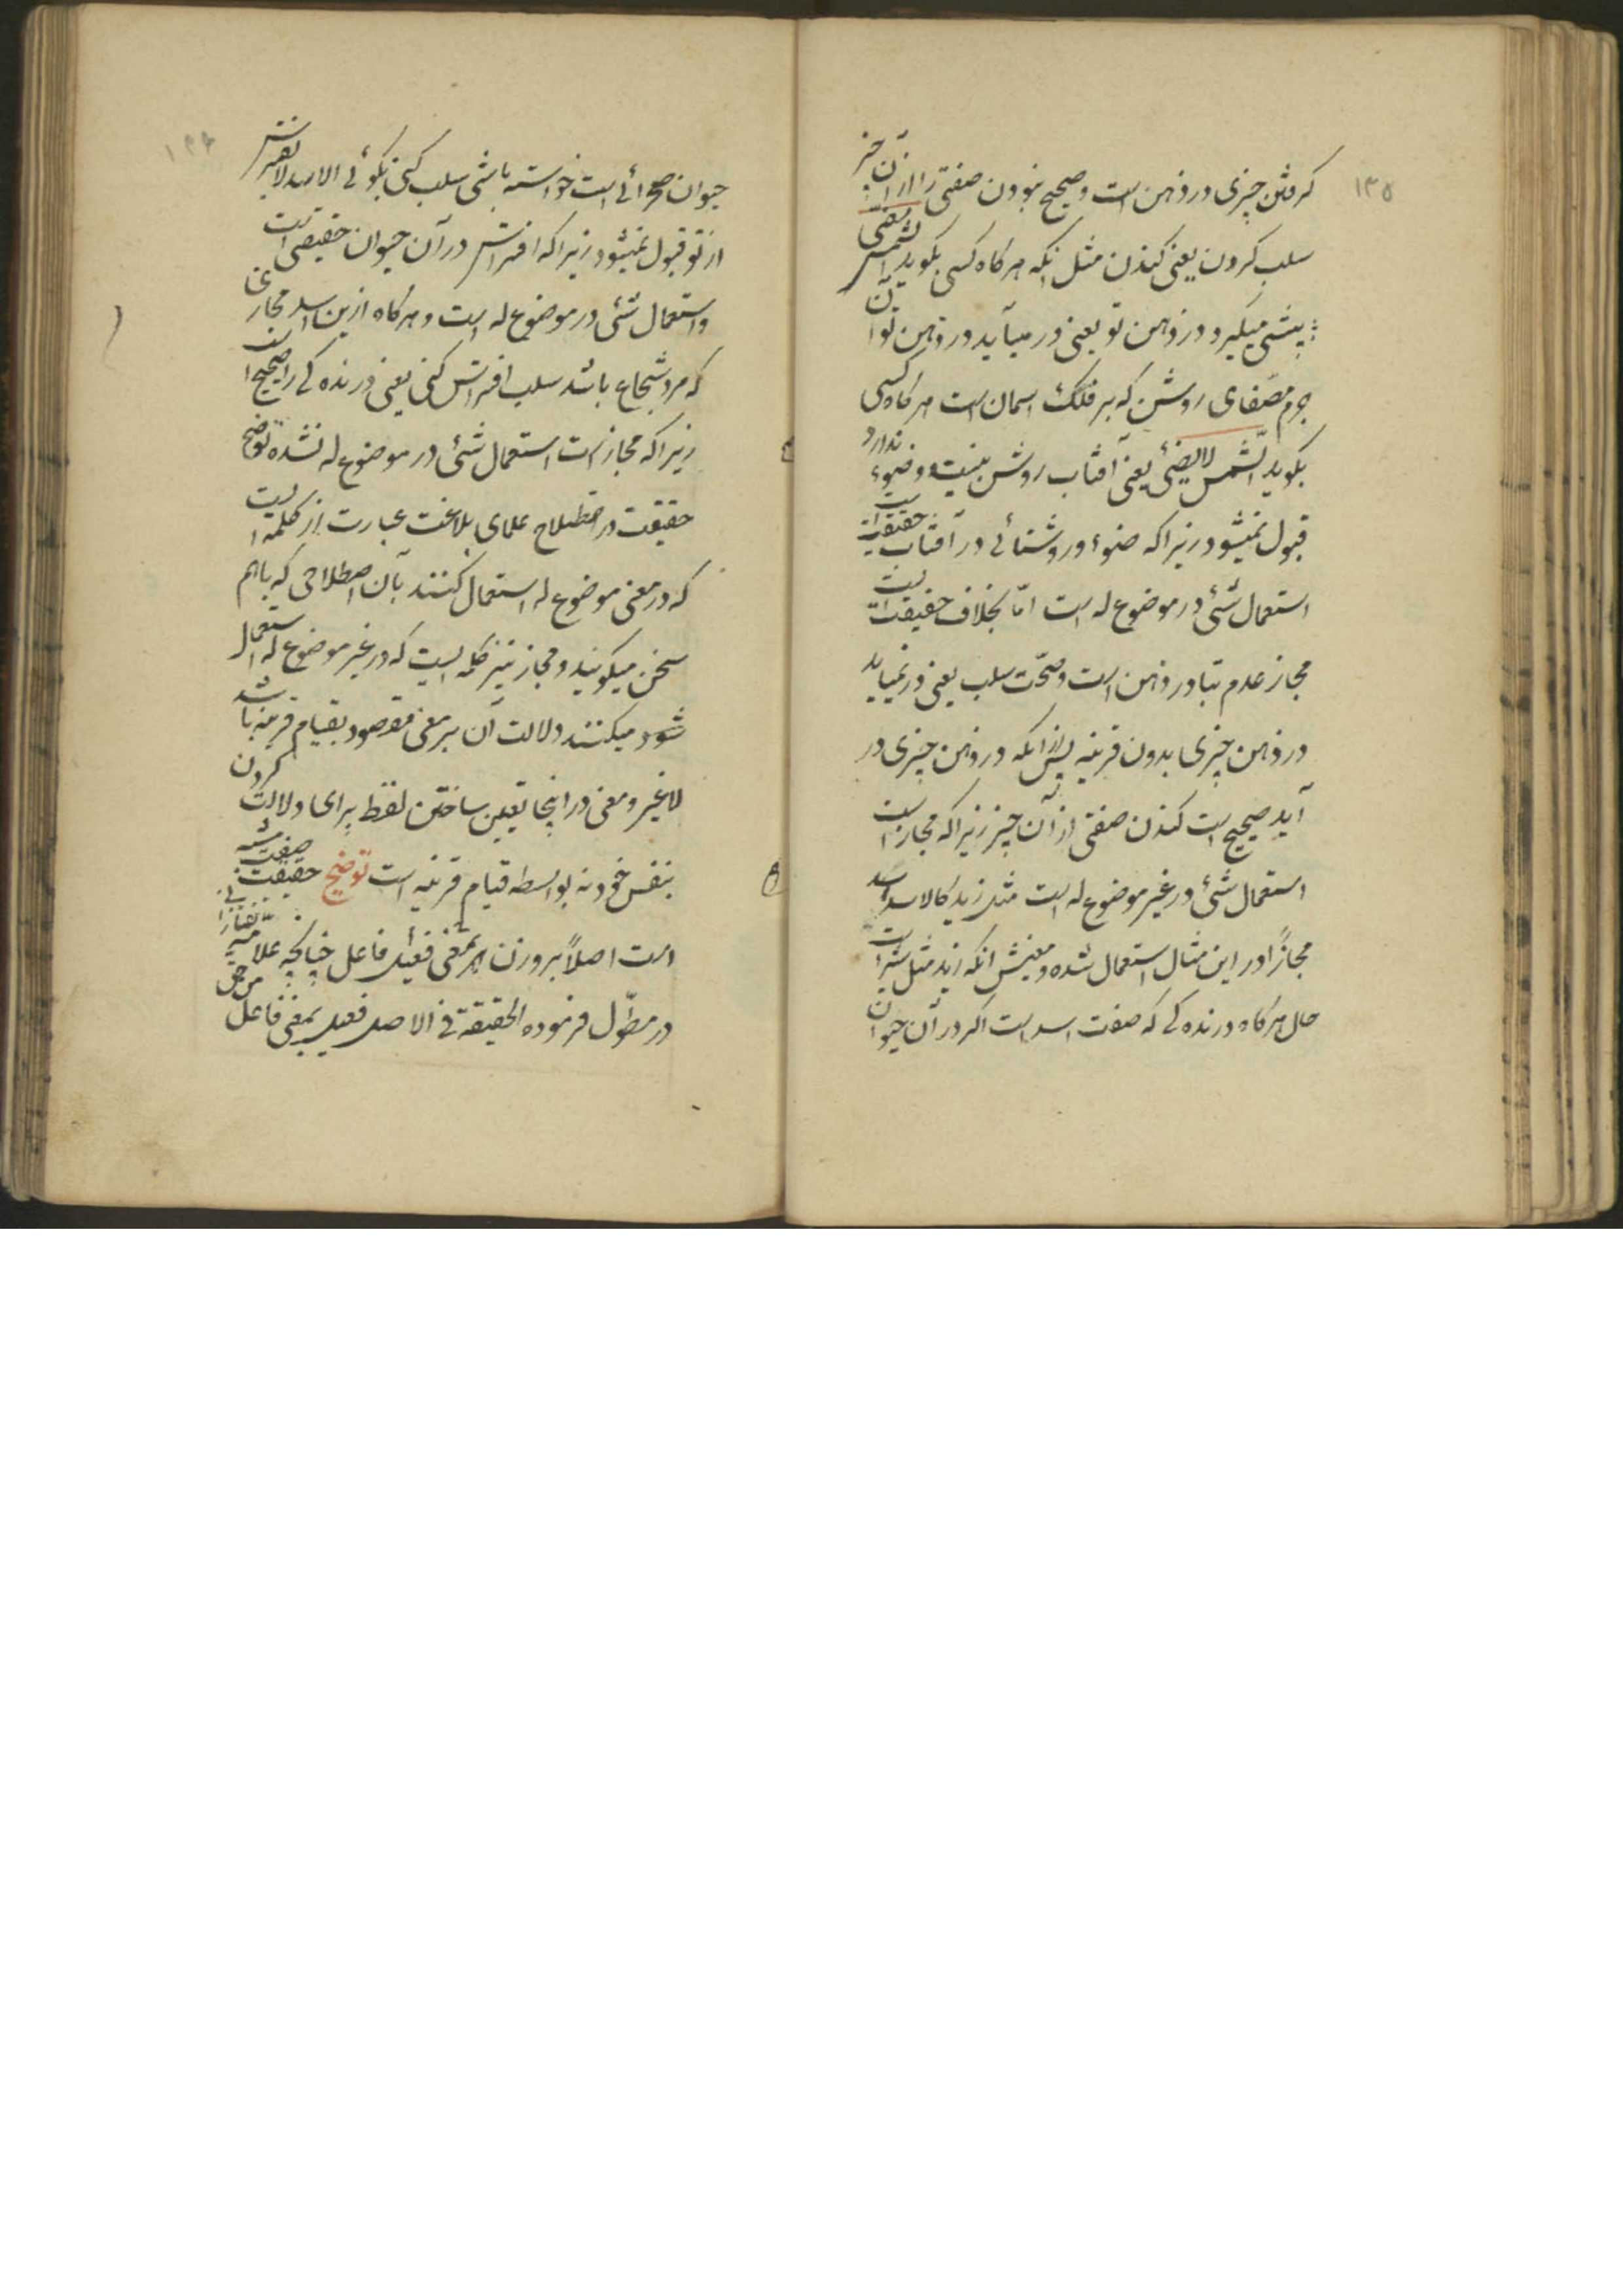 ۱۳۵
کرفتن چیزی در ذهن است و صحیح نبودن صفتی را از آن چیز
سلب کردن یعنی کندن مثل انکه هر کاه کسی بکوید الشمس تضئ
پیشی میکیرد در ذهن تو یعنی در میآید در ذهن تو آن
جرم مصفای روشن که بر فلک اسمان است هر کاه کسی
بکوید الشمس لا یضئ یعنی آفتاب روشن نیست و ضوء ندارد
قبول نمیشود زیرا که ضوء و روشنائی در آفتاب حقیقت است
استعمال شئ در موضوع له است امّا بخلاف حقیقت است
مجاز عدم تبادر ذهن است و صحّت سلب یعنی در نمیاید
در ذهن چیزی بدون قرینه پس از انکه در ذهن چیزی در
آید صحیح است کندن صفتی از آن چیز زیرا که مجاز است
استعمال شئ در غیر موضوع له است مثل زید کالاسد اسد
مجازًا در این مثال استعمال شده و معنیش انکه زید مثل شیر است
حال هر کاه درنده کی که صفت اسد است اکر در آن حیوان
حیوان صحرائی است خواسته باشی سلب کنی بکوئی الاسد لا یفترس
از تو قبول نمیشود زیرا که افتراس در آن حیوان حقیقی است
و استعمال شئ در موضوع له است و هر کاه از این اسد مجازی
که مرد شجاع باشد سلب افتراس کنی یعنی درنده کی را صحیح است
زیرا که مجاز است استعمال شئ در موضوع له نشده توضیح
حقیقت در اصطلاح علمای بلاغت عبارت از کلمه است
که در معنی موضوع له استعمال کنند بآن اصطلاحی که باهم
سخن میکویند و مجاز نیز کلمه ایست که در غیر موضوع له استعمال
شود میکنند دلالت آن بر معنی مقصود بقیام قرینه باشد
لا غیر و معنی در اینجا تعیین ساختن لفظ برای دلالت کردن
بنفس خود نه بواسطه قیام قرینه است توضیح حقیقت صفت مشبه
است اصلاً بر وزن بمعنی فعیل فاعل چنانچه علامه تفتازانی
در مطوّل فرموده الحقیقة فی الاصل فعیل بمعنی فاعل من حق